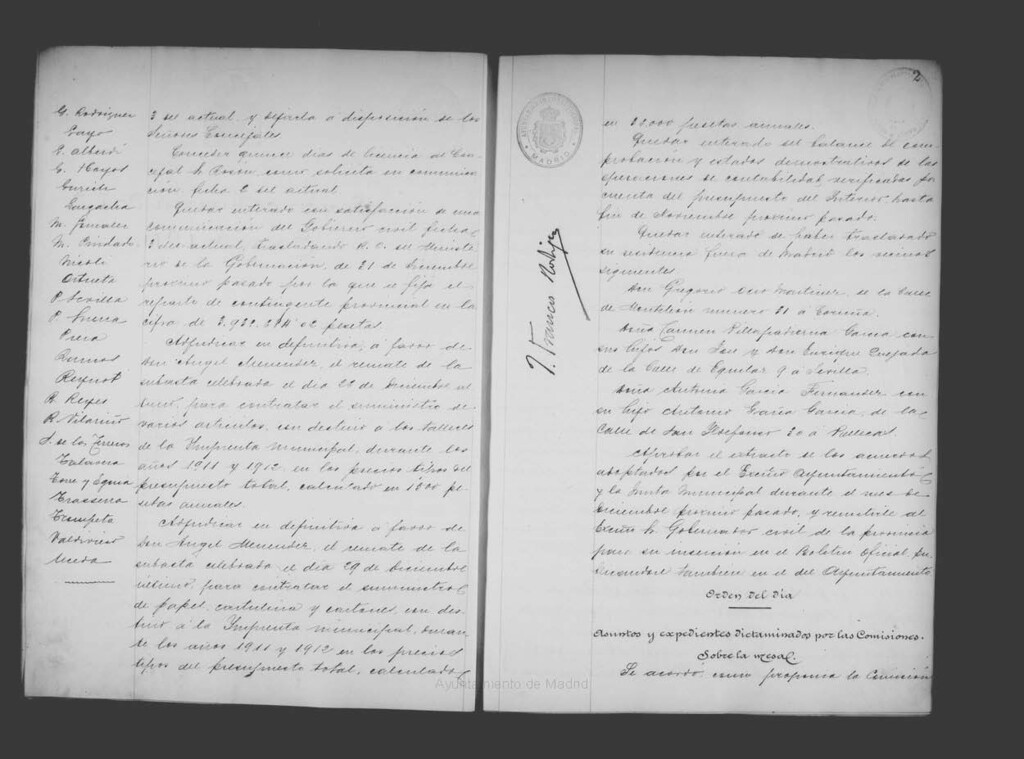 G. Rodriguez
E. Alberdi
G. Hoyos
M. Gonzalez
M. Cividad
Nicoli
P. Sevilla
Piera
Barrios
Reynot
R. Reyes
R. Vilariño
Talavera
Trasserra
Trompeta
Valdivieso
Uceda
3 del actual y dejarla á disposición de los
Señores Concejales
Conceder quince dias de licencia al Con-
cejal Sr. Rosón, como solicita en comunica-
ción fecha 2 del actual.
Quedar enterado con satisfacción de una
comunicación del Gobierno civil fecha
3 del actual, trasladando R.O. del Ministe-
rio de la Gobernación, de 31 de Diciembre
próximo pasado por la que se fija el
reparto de contingente provincial en la
cifra de pesetas
Adjudicar en definitiva, á favor de
Don Angel Menendez, el remate de la
subasta celebrada el dia 22 de Diciembre
para contratar el suministro de
varios articulos, con destino á los Talleres
de la Imprenta Municipal, durante los
años 1911 y 1912, en los precios tipos del
presupuesto total, calculado en 1000 pe-
setas anuales.
Adjudicar en definitiva á favor de
Don Angel Menendez, el remate de la
subasta celebrada el dia 29 de Diciembre
último, para contratar el suministro
de papel, cartulina y cartones, con des-
tino á la Imprenta municipal, duran-
te los años 1911 y 1912 en los precios
tipos del presupuesto total, calculados
2
AYUNTAMIENTO
MADRID
F. Francisco Rodrigo
en 20.000 pesetas anuales.
Quedar enterado del balance de com-
probación y estados demostrativos de las
operaciones de contabilidad, verificadas por
cuenta del presupuesto del Interior, hasta
fin de Noviembre próximo pasado.
Quedar enterado de haber trasladado
su residencia fuera de Madrid los vecinos
siguientes.
Don Gregorio Oco Martinez, de la Calle
de Monteleón número 21 á Coruña
Doña Carmen Villapadierna Garcia con
sus hijos Don José y Don Enrique Quejada
de la Calle de Eguilaz 9 á Sevilla.
Doña Antonia Garcia Fernandez con
su hijo Antonio Garcia, de la
Calle de San Ildefonso 30 á
Aprobar el extracto de los acuerdos
adoptados por el Excmo Ayuntamiento
y la Junta Municipal durante el mes de
Diciembre próximo pasado, y remitirle al
Excmo Sr. Gobernador civil de la provincia
para su inserción en el Boletin Oficial
tambien en el del Ayuntamiento
Orden del día
Asuntos y expedientes dictaminados por las Comisiones.
Sobre la mesa.
Se acordó, como proponia la Comisión
Ayuntamiento de Madrid